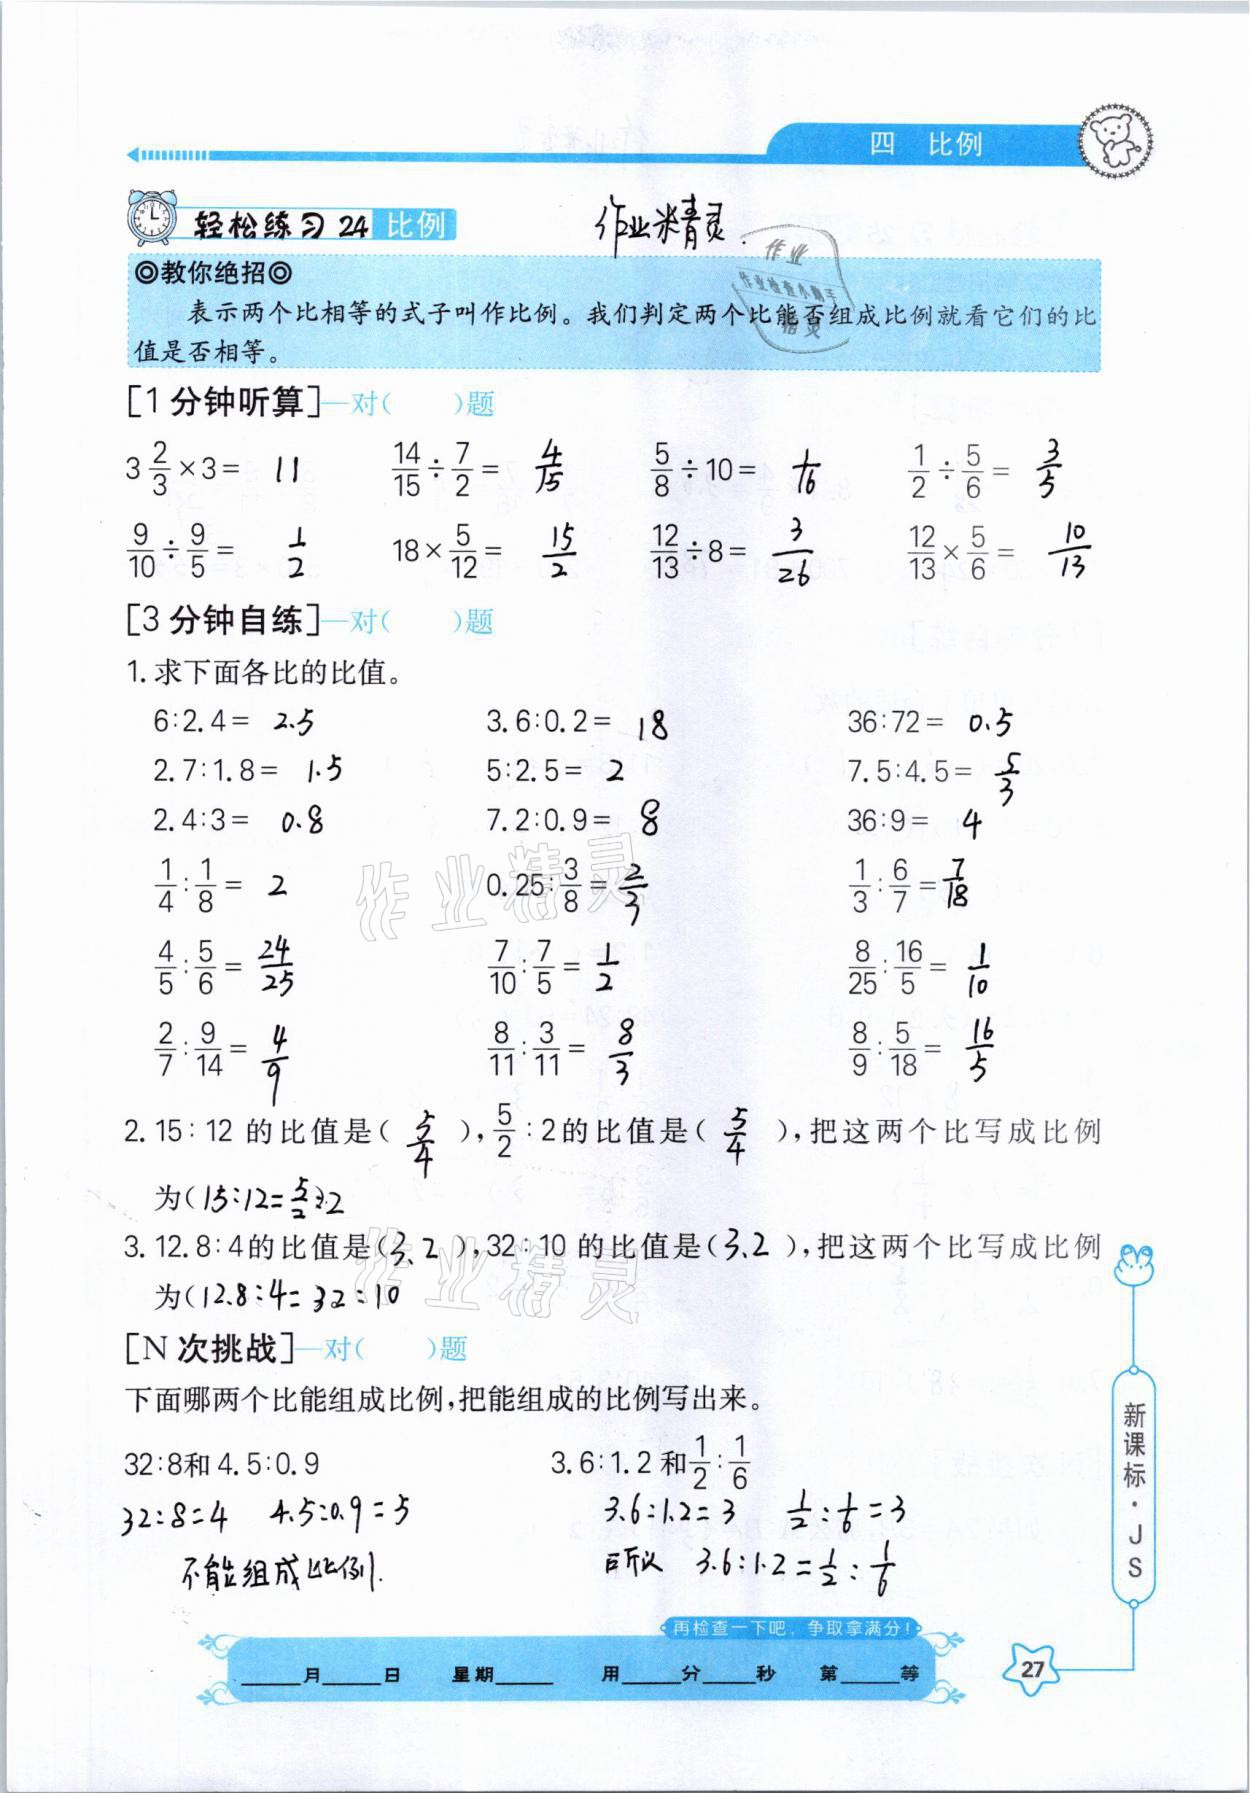 四 比例
轻松练习 24 比例
作业精灵
作业
作业检查小助手
精灵
◎教你绝招◎
表示两个比相等的式子叫作比例。我们判定两个比能否组成比例就看它们的比
值是否相等。
[1分钟听算]—对( )题
3 2/3 ×3= 11 14/15 ÷ 7/2 = 4/15 5/8 ÷10= 1/16 1/2 ÷ 5/6 = 3/5
9/10 ÷ 9/5 = 1/2 18× 5/12 = 15/2 12/13 ÷8= 3/26 12/13 × 5/6 = 10/13
[3分钟自练]—对( )题
1.求下面各比的比值。
6∶2.4= 2.5 3.6∶0.2= 18 36∶72= 0.5
2.7∶1.8= 1.5 5∶2.5= 2 7.5∶4.5= 5/3
2.4∶3= 0.8 7.2∶0.9= 8 36∶9= 4
1/4 ∶ 1/8 = 2 0.25∶ 3/8 = 2/3 1/3 ∶ 6/7 = 7/18
4/5 ∶ 5/6 = 24/25 7/10 ∶ 7/5 = 1/2 8/25 ∶ 16/5 = 1/10
2/7 ∶ 9/14 = 4/9 8/11 ∶ 3/11 = 8/3 8/9 ∶ 5/18 = 16/5
2.15∶12 的比值是( 5/4 ),5/2∶2的比值是( 5/4 ),把这两个比写成比例
为(15∶12=5/2∶2
3.12.8∶4的比值是(3.2),32∶10 的比值是(3.2),把这两个比写成比例
为(12.8∶4=32∶10
[N次挑战]—对( )题
下面哪两个比能组成比例,把能组成的比例写出来。
32∶8和4.5∶0.9 3.6∶1.2和1/2∶1/6
32∶8=4 4.5∶0.9=5 3.6∶1.2=3 1/2∶1/6=3
不能组成比例. 所以 3.6∶1.2=1/2∶1/6
新课标·JS
再检查一下吧,争取拿满分!
____月____日 星期____ 用____分____秒 第____等
27
作业精灵
作业精灵